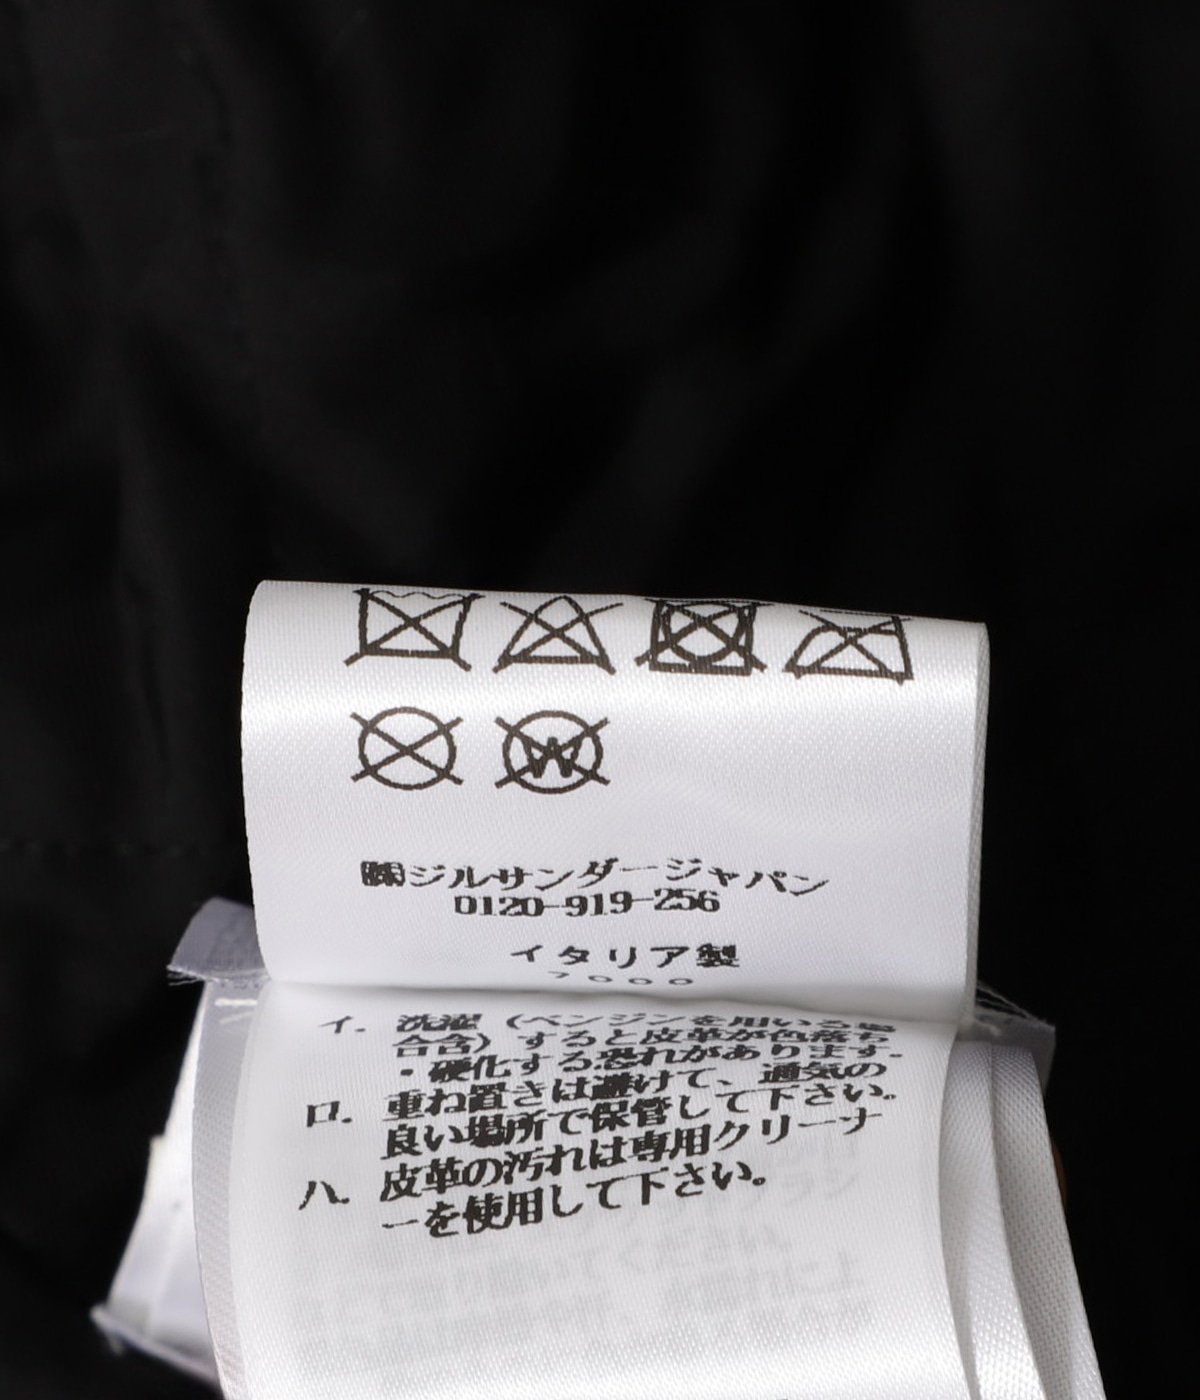 ㈱ジルサンダージャパン
0120-919-256
イタリア製
イ. 洗濯 (ベンジンを用いる場
合含) すると皮革が色落ち
・硬化する恐れがあります.
ロ. 重ね置きは避けて、通気の
良い場所で保管して下さい。
ハ. 皮革の汚れは専用クリーナ
ーを使用して下さい。